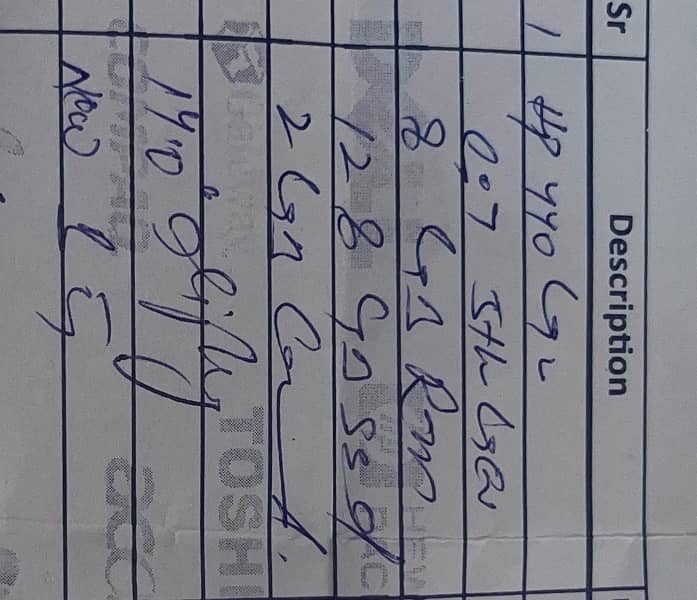 Sr Description
1 HP 440 G2
Co7 5th Gen
8 GB Ram
128 GB SSd
2 GB Card
14.0" display
New
TOSHI